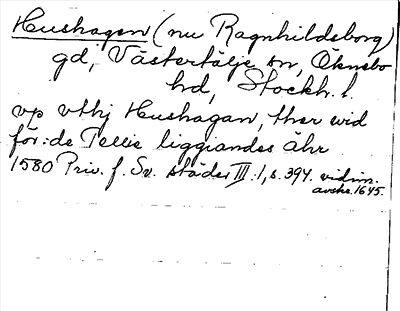 Hushagen (nu Ragnhildsborg)
gd, Västertälje sn, Öknebo
hd, Stockh. l.
vp vthj Hushagan, ther wid
för:de Tellie liggiandes ähr
1580 Priv. f. Sv. städer III:1, s. 394. vidim.
avskr. 1645.